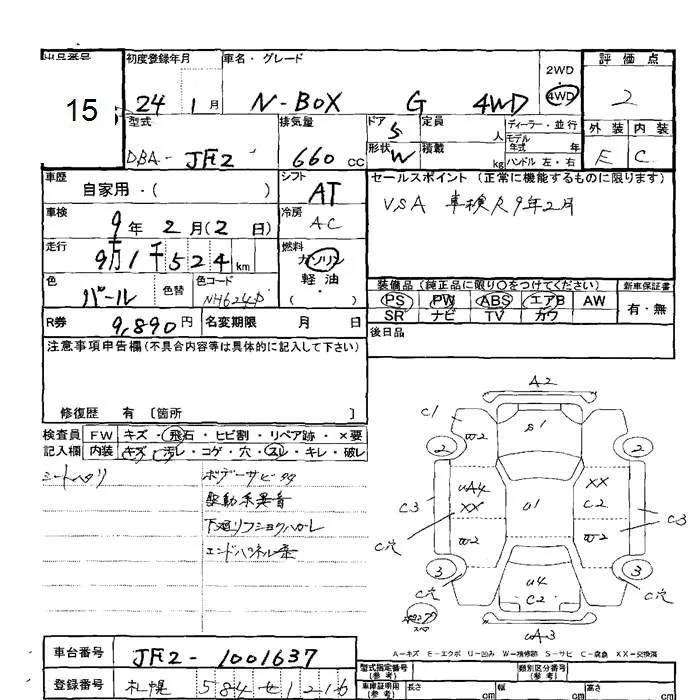 出品番号
15
初度登録年月
24 1 月
車名・グレード
N-BOX G 4WD
2WD
4WD
評価点
2
型式
DBA- JF2
排気量
660 CC
ドア
5
形状
W
定員
人
積載
kg
ディーラー・並行
モデル年式 年
ハンドル 左・右
外装 内装
E C
車歴
自家用・( )
シフト
AT
セールスポイント (正常に機能するものに限ります)
VSA 車検R9年2月
車検
9年 2月(2日)
冷房
AC
走行
9万1千524km
燃料
ガソリン
軽・油
( )
色
パール
色替
色コード
NH624P
装備品 (純正品に限り○をつけてください)
PS PW ABS エアB AW
SR ナビ TV カワ
新車保証書
有・無
R券
9,890円
名変期限 月 日
後日品
注意事項申告欄(不具合内容等は具体的に記入して下さい)
修復歴 有 [箇所 ]
検査員
記入欄
FW キズ・飛石・ヒビ割・リペア跡・×要
内装 キズ・汚レ・コゲ・穴・スレ・キレ・破レ
シートヘタリ
ボデーサビ
駆動系異音
下廻リフショクハガレ
エンドパネル
A2
C1
S1
W2
2
2
UA4
XX
XX
C2
U1
C3
C3
C穴
W2
W2
3
3
C穴
C穴
U4
C2
UA3
A-キズ E-エクボ U-凹み W-補修跡 S-サビ C-腐食 XX-交換済
車台番号
JF2-1001637
登録番号
札幌 584 セ 1216
型式指定番号
(参考)
類別区分番号
(参考)
車庫証明用
(参考)
長さ cm
幅 cm
高さ cm